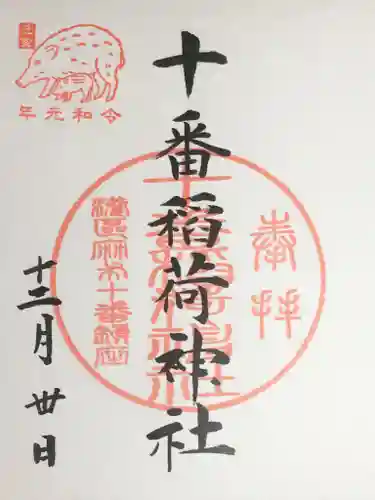 奉拝
十番稲荷神社
十番稲荷神社
港区麻布十番鎮座
令和元年
十二月丗日